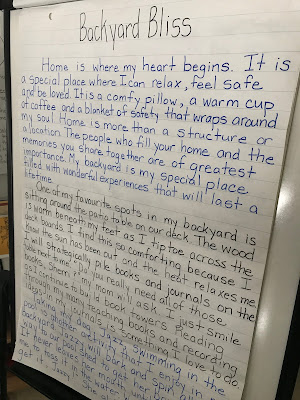 Backyard Bliss
Home is where my heart begins. It is
a special place where I can relax, feel safe
and be loved. It is a comfy pillow, a warm cup
of coffee and a blanket of safety that wraps around
my soul. Home is more than a structure or
a location. The people who fill your home and the
memories you share together are of greatest
importance. My backyard is my special place
filled with wonderful experiences that will last a
lifetime.
One of my favourite spots in my backyard is
sitting around the patio table on our deck. The wood
is warm beneath my feet as I tiptoe across the
deck boards. I find this so comforting because I
know the sun has been out and the heat relaxes me.
I will strategically pile books and journals on the
table next to me. "Do you really need all of those
books, Sherri?" my mom will ask. I just smile
as I continue to build book towers. Reading
through my many teaching books and recording
in my journals is something I love to do.
Taking the dog, Jazz, swimming in the
backyard